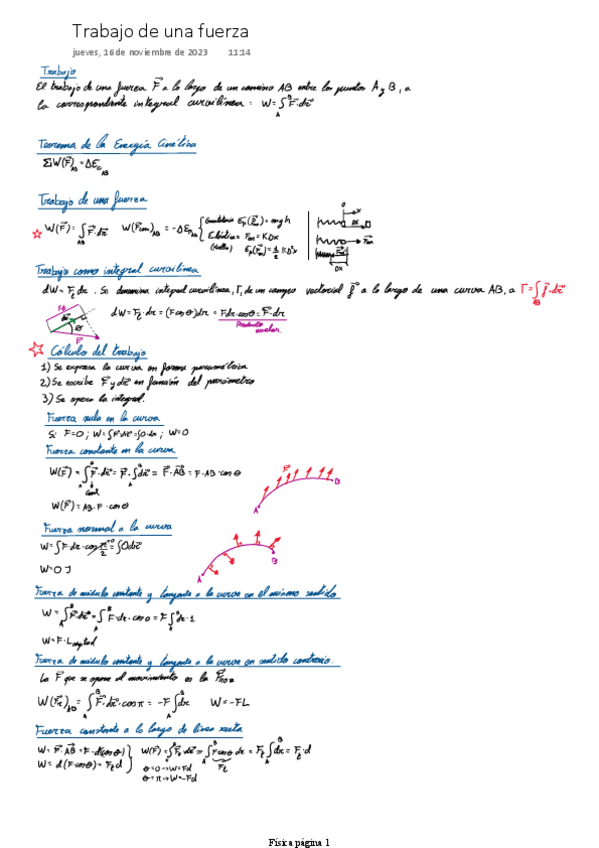 Trabajo de una fuerza
jueves, 16 de noviembre de 2023 11:14
Trabajo
El trabajo de una fuerza F⃗ a lo largo de un camino AB entre los puntos A y B, a
la correspondiente integral curvilínea : W = ∫_A^B F⃗·dr⃗
Teorema de la Energía Cinética
ΣW(F⃗)_AB = ΔEc_AB
Trabajo de una fuerza
W(F⃗) = ∫_AB F⃗·dr⃗ W(F⃗con)_AB = -ΔEp_AB { Ep(P⃗) = mgh
Elástica F = KΔx
(Muelle) Ep(F⃗) = 1/2 KΔ²x
0 x
Δx
Trabajo como integral curvilínea
dW = F⃗·dr⃗ . Se denomina integral curvilínea, Γ, de un campo vectorial f⃗ a lo largo de una curva AB, a Γ = ∫_AB f⃗·dr⃗
dW = Ft·dr = (F cosθ)dr = F dr cosθ = F⃗·dr⃗
Producto escalar.
θ
Cálculo del trabajo
1) Se expresa la curva en forma paramétrica
2) Se escribe F⃗ y dr⃗ en función del parámetro
3) Se opera la integral.
Fuerza nula en la curva
Si F=0 ; W=∫F⃗·dr⃗=∫0·dr ; W=0
Fuerza constante en la curva
W(F⃗) = ∫_A^B F⃗·dr⃗ = F⃗·∫_A^B dr⃗ = F⃗·AB⃗ = F·AB·cosθ
W(F⃗) = AB·F·cosθ
F⃗
A B
Fuerza normal a la curva
W=∫F·dr·cos π/2 = ∫0dr⃗
W=0 J
A B
Fuerza de módulo constante y tangente a la curva en el mismo sentido
W = ∫_A^B F⃗·dr⃗ = ∫_A^B F·dr·cos0 = F∫_A^B dr·1
W=F·L
Fuerza de módulo constante y tangente a la curva en sentido contrario.
La F⃗ que se opone al movimiento es la F⃗roz
W(F⃗R)_AB = ∫_A^B F⃗·dr⃗·cosπ = -F∫dr W=-FL
Fuerza constante a lo largo de línea recta
W= F⃗·AB⃗ = F·d(cosθ) } W(F⃗)=∫_A^B F⃗·dr⃗ = ∫_A^B F cosθ dr = Ft∫_A^B dr = Ft·d
W= d(F·cosθ) = Ft d
Ft
θ=0→W=Fd
θ=π→W=-Fd
Física página 1